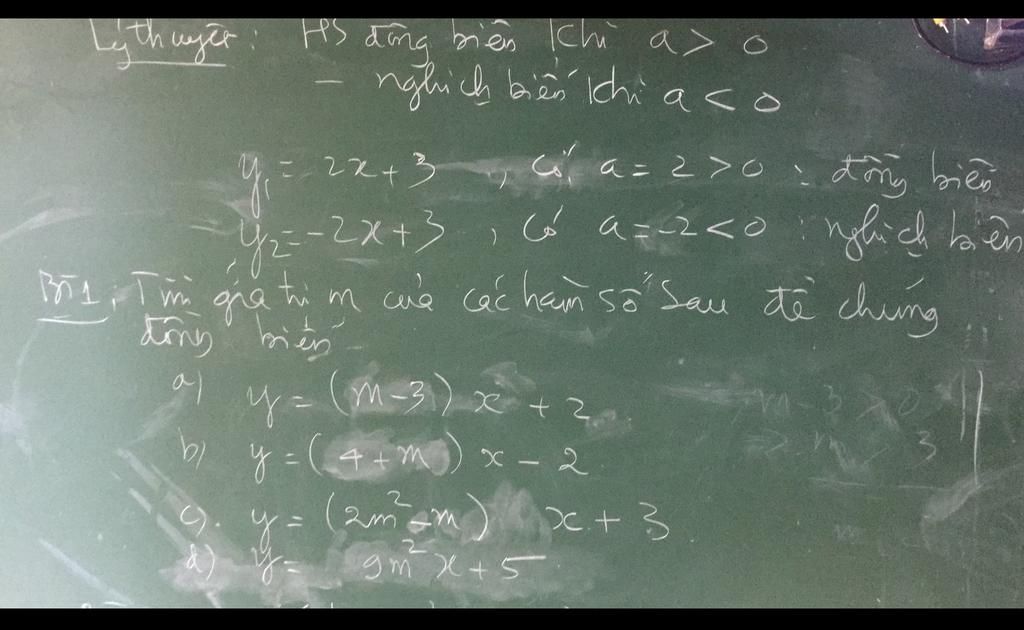 Lý thuyết: HS đồng biến khi a > 0
- nghịch biến khi a < 0
y₁ = 2x + 3, có a = 2 > 0 : đồng biến
y₂ = -2x + 3, có a = -2 < 0 : nghịch biến
Bài 1. Tìm giá trị m của các hàm số sau để chúng
đồng biến
a) y = (m-3) x + 2
m - 3 > 0
b) y = (4+m) x - 2
=> m > 3
c). y = (2m² - m) x + 3
d) y = 9m² x + 5